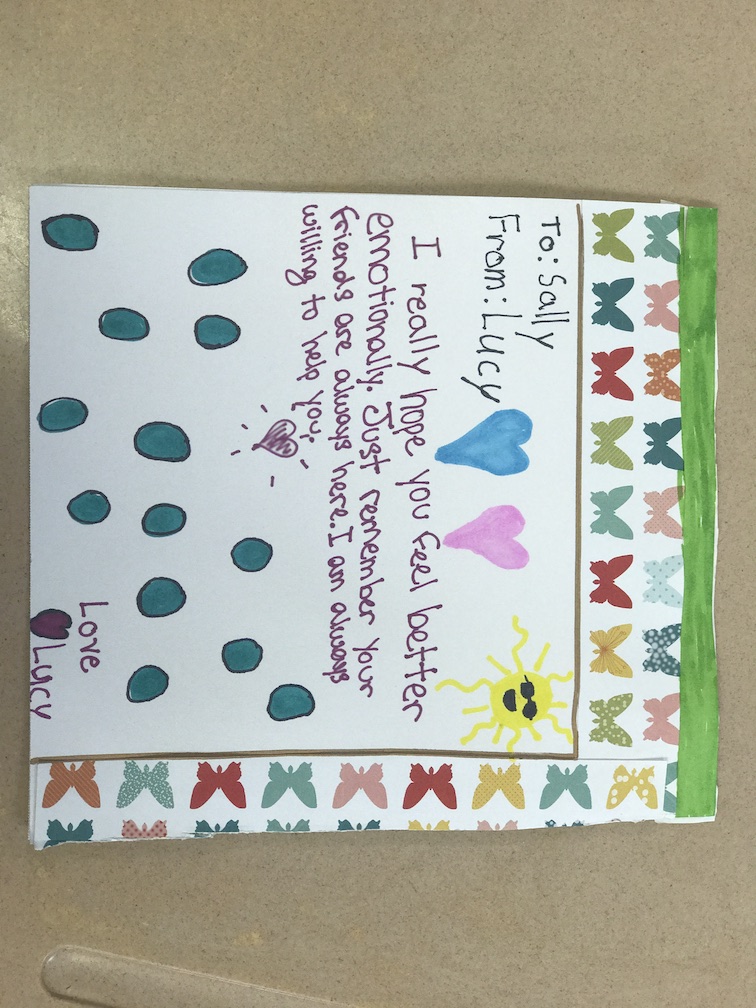 To: Sally
From: Lucy
I really hope you feel better
emotionally. Just remember your
friends are always here. I am always
willing to help you.
Love
Lucy